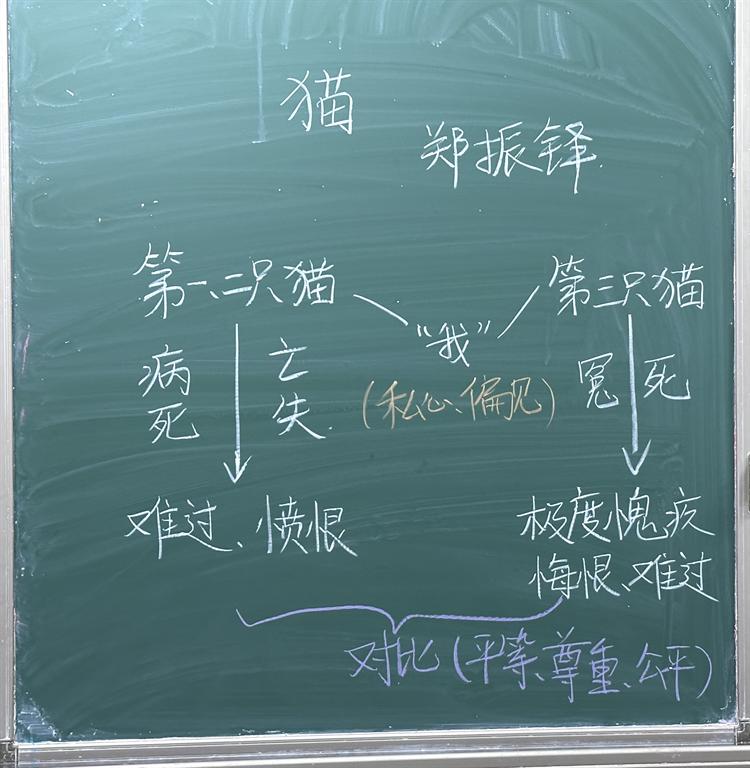 猫
郑振铎
第一、二只猫
"我"
第三只猫
病死
亡失
(私心、偏见)
冤死
难过、愤恨
极度愧疚
悔恨、难过
对比(平等、尊重、公平)